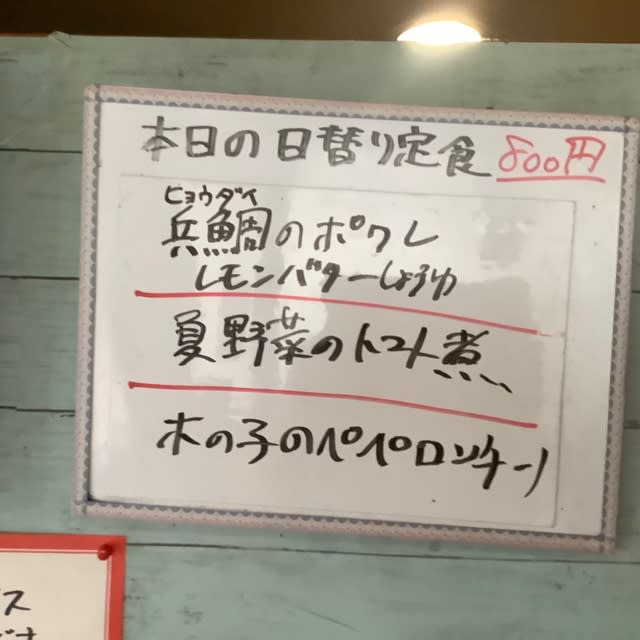 本日の日替り定食 800円
ヒョウダイ
兵鯛のポワレ
レモンバターしょうゆ
夏野菜のトマト煮
木の子のペペロンチーノ
ス